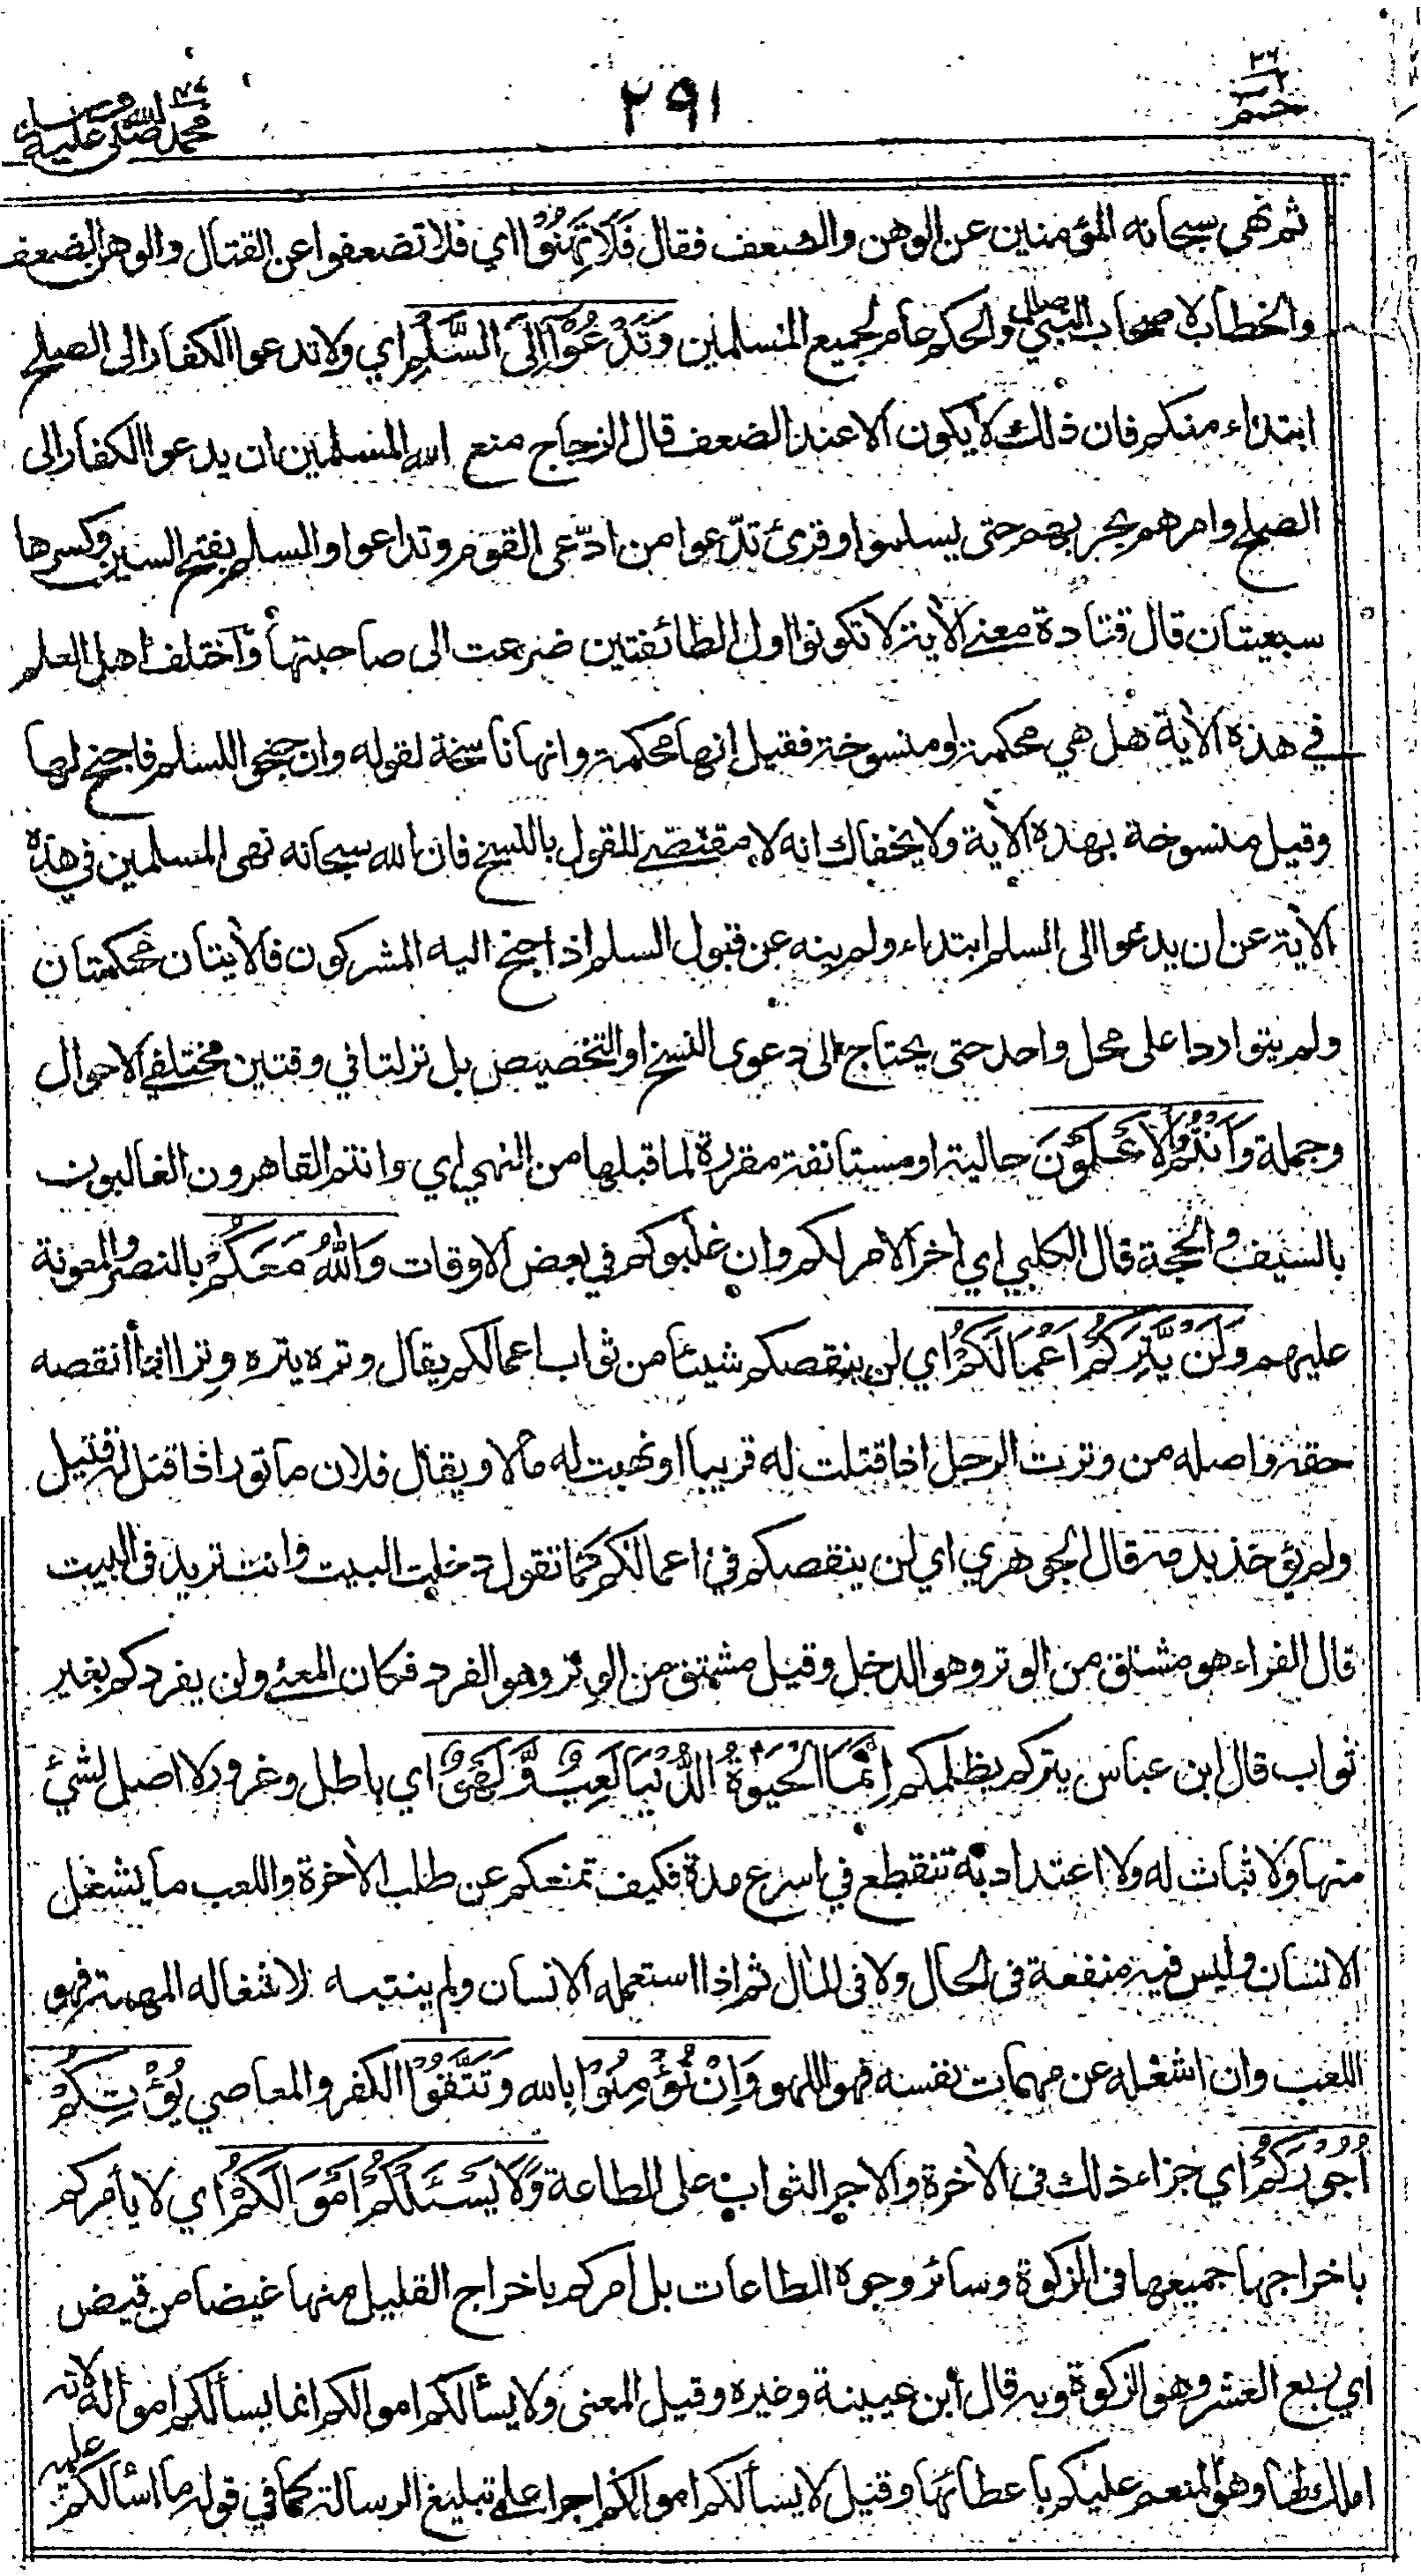 ٢٦
حم
٢٩١
محمد صلى الله عليه وسلم
ثم نهى سبحانه المؤمنين عن الوهن والضعف فقال فَلَا تَهِنُوْا اي فلا تضعفوا عن القتال والوهن الضعف
والخطاب لاصحاب النبي صلى والحكم عام لجميع المسلمين وَتَدْعُوْآ اِلَى السَّلْمِ اي ولا تدعوا الكفار الى الصلح
ابتداء منكم فان ذلك لا يكون الا عند الضعف قال الزجاج منع الله المسلمين ان يدعوا الكفار الى
الصلح وامرهم بحربهم حتى يسلموا وقرئ تدّعوا من ادّعى القوم وتداعوا والسلم بفتح السين وكسرها
سبعيتان قال قتادة معنى الأية لا تكونوا اول الطائفتين ضرعت الى صاحبتها وآختلف اهل العلم
في هذه الأية هل هي محكمة او منسوخة فقيل انها محكمة وانها ناسخة لقوله وان جنحوا للسلم فاجنح لها
وقيل منسوخة بهذه الأية ولا يخفاك انه لا مقتضى للقول بالنسخ فان الله سبحانه نهى المسلمين في هذه
الأية عن ان يدعوا الى السلم ابتداء ولم ينه عن قبول السلم اذا جنح اليه المشركون فالأيتان محكمتان
ولم يتواردا على محل واحد حتى يحتاج الى دعوى النسخ او التخصيص بل نزلتا في وقتين مختلفي الاحوال
وجملة وَاَنْتُمُ الْاَعْلَوْنَ حالية او مستانفة مقررة لما قبلها من النهي اي وانتم القاهرون الغالبون
بالسيف والحجة قال الكلبي اي أخر الامر لكم وان غلبوكم في بعض الاوقات وَاللّٰهُ مَعَكُمْ بالنصر والمعونة
عليهم وَلَنْ يَّتِرَكُمْ اَعْمَالَكُمْ اي لن ينقصكم شيئا من ثواب اعمالكم يقال وتره يتره وترا انما أنقصه
حقه واصله من وترت الرجل اذا قتلت له قريبا او نهبت له مالا ويقال فلان ماتور اذا قتل له قتيل
ولم يؤخذ بدمه قال الجوهري اي لن ينقصكم في اعمالكم كما تقول دخلت البيت وانت تريد في البيت
قال الفراء هو مشتق من الوتر وهو الدخل وقيل مشتق من الوتر وهو الفرد فكان المعنى ولن يفردكم بغير
ثواب قال ابن عباس يتركم يظلمكم اِنَّمَا الْحَيٰوةُ الدُّنْيَا لَعِبٌ وَّلَهْوٌ اي باطل وغرور لا اصل لشئ
منها ولا ثبات له ولا اعتداد به تنقطع في اسرع مدة فكيف تمنعكم عن طلب الأخرة واللعب ما يشغل
الانسان وليس فيه منفعة في الحال ولا في المال ثم اذا استعمله الانسان ولم ينتبه لاشغاله المهمة فهو
اللعب وان اشغله عن مهمات نفسه فهو اللهو وَاِنْ تُؤْمِنُوْا بالله وَتَتَّقُوْا الكفر والمعاصي يُؤْتِكُمْ
اُجُوْرَكُمْ اي جزاء ذلك في الأخرة والاجر الثواب على الطاعة وَلَا يَسْئَلْكُمْ اَمْوَالَكُمْ اي لا يأمركم
باخراجها جميعها في الزكوة وسائر وجوه الطاعات بل امركم باخراج القليل منها غيضا من فيض
اي ربع العشر وهو الزكوة وبه قال ابن عيينة وغيره وقيل المعنى ولا يسألكم اموالكم انما يسألكم امواله لانه
املك لها وهو المنعم عليكم باعطائها وقيل لا يسألكم اموالكم اجرا على تبليغ الرسالة كما في قوله ما اسألكم عليه